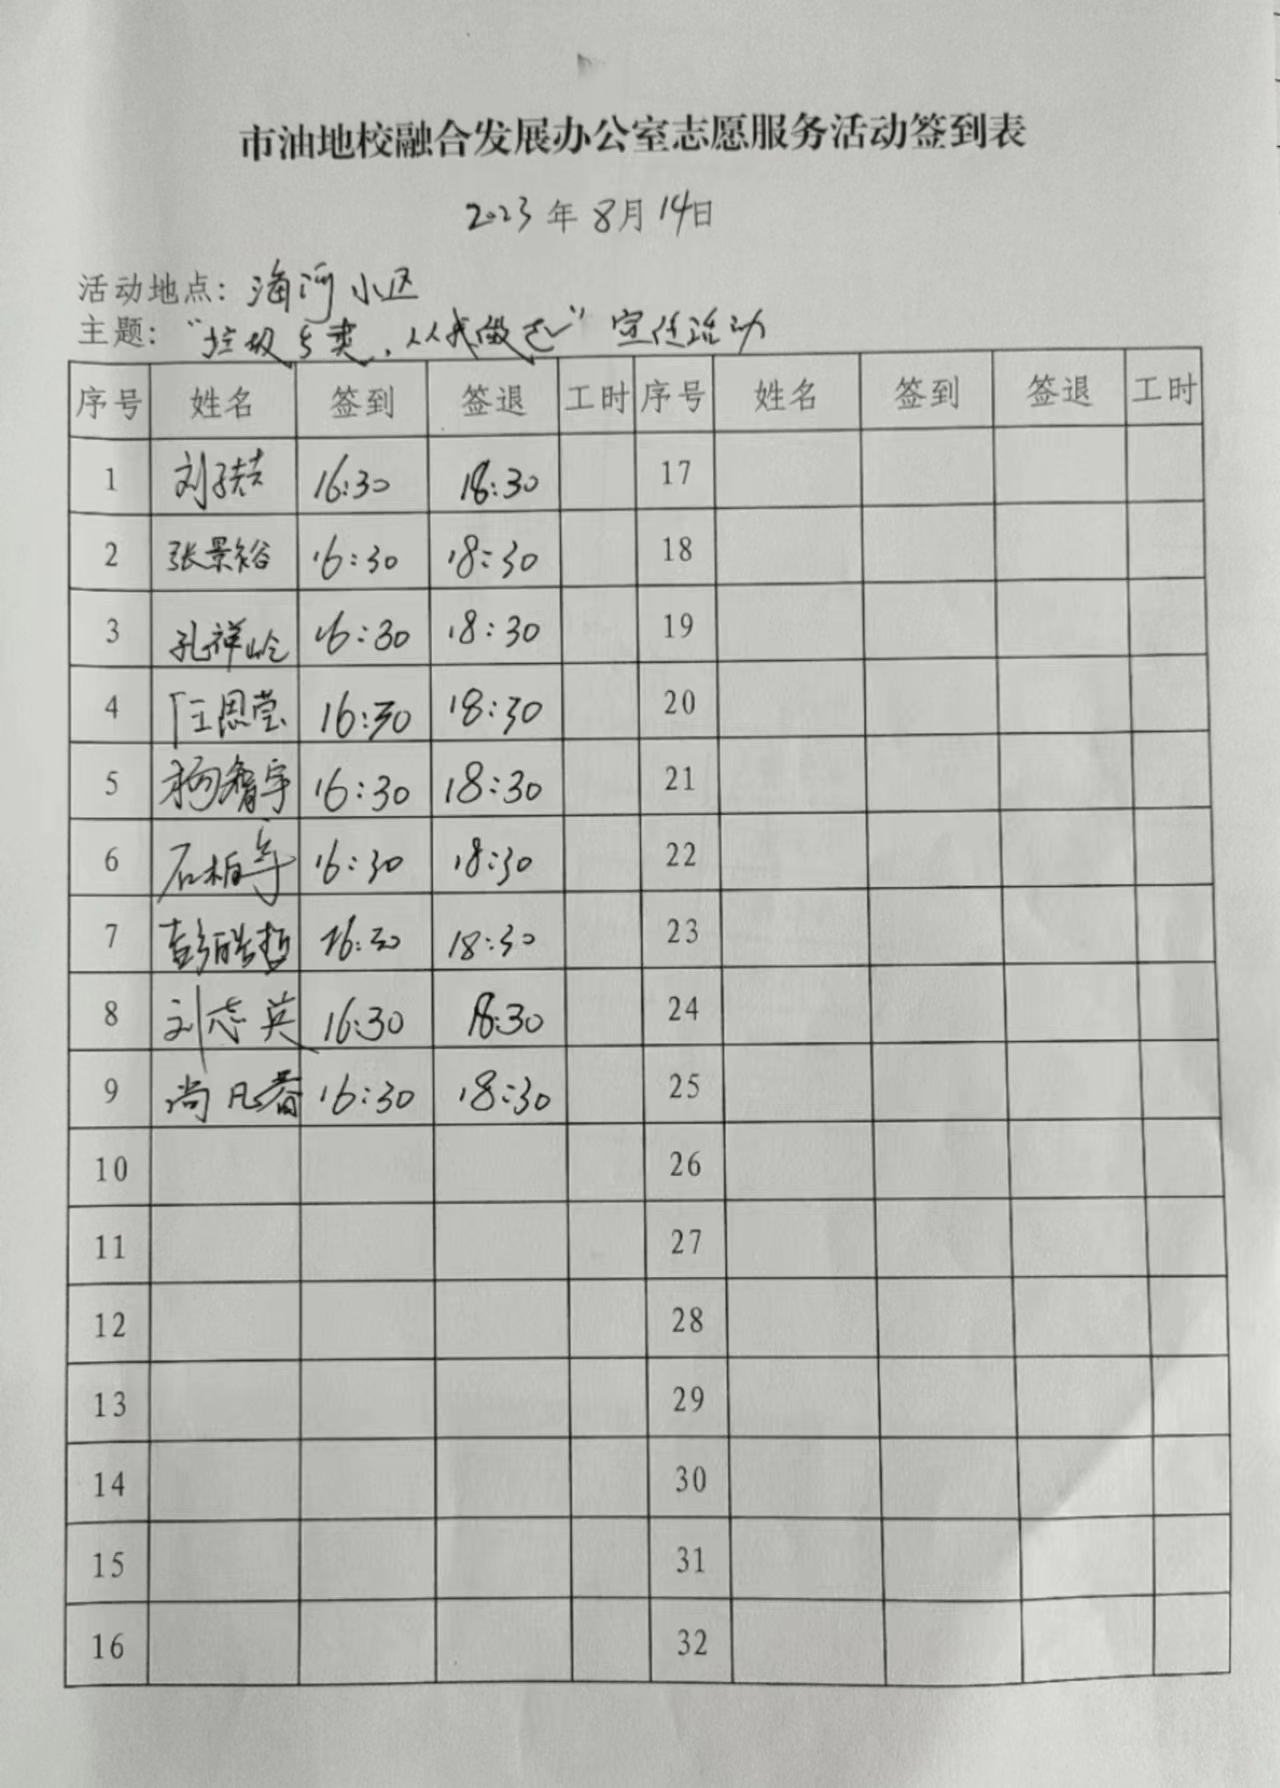 市油地校融合发展办公室志愿服务活动签到表
2023年8月14日
活动地点：海河小区
主题：“垃圾分类，从我做起”宣传活动
序号 姓名 签到 签退 工时 序号 姓名 签到 签退 工时
1 刘子喆 16:30 18:30 17
2 张景裕 16:30 18:30 18
3 孔祥岭 16:30 18:30 19
4 汪思莹 16:30 18:30 20
5 杨智宇 16:30 18:30 21
6 石柏 16:30 18:30 22
7 彭皓哲 16:30 18:30 23
8 刘志英 16:30 18:30 24
9 尚凡春 16:30 18:30 25
10 26
11 27
12 28
13 29
14 30
15 31
16 32